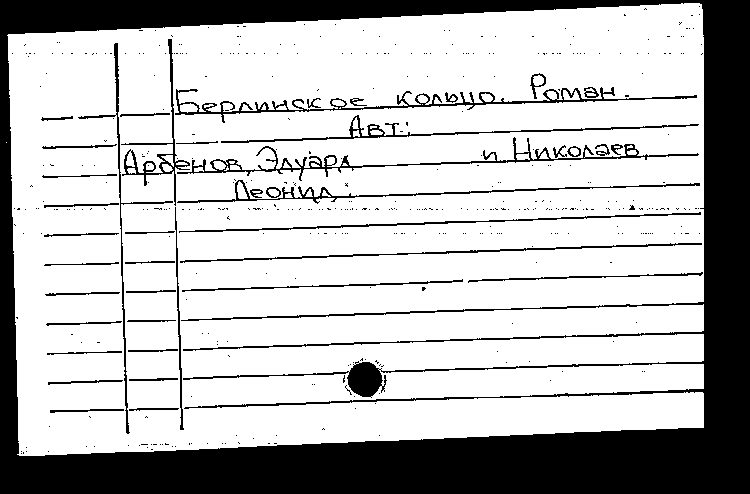 Берлинское кольцо. Роман.
Авт.:
Арбенов, Эдуард и Николаев,
Леонид.